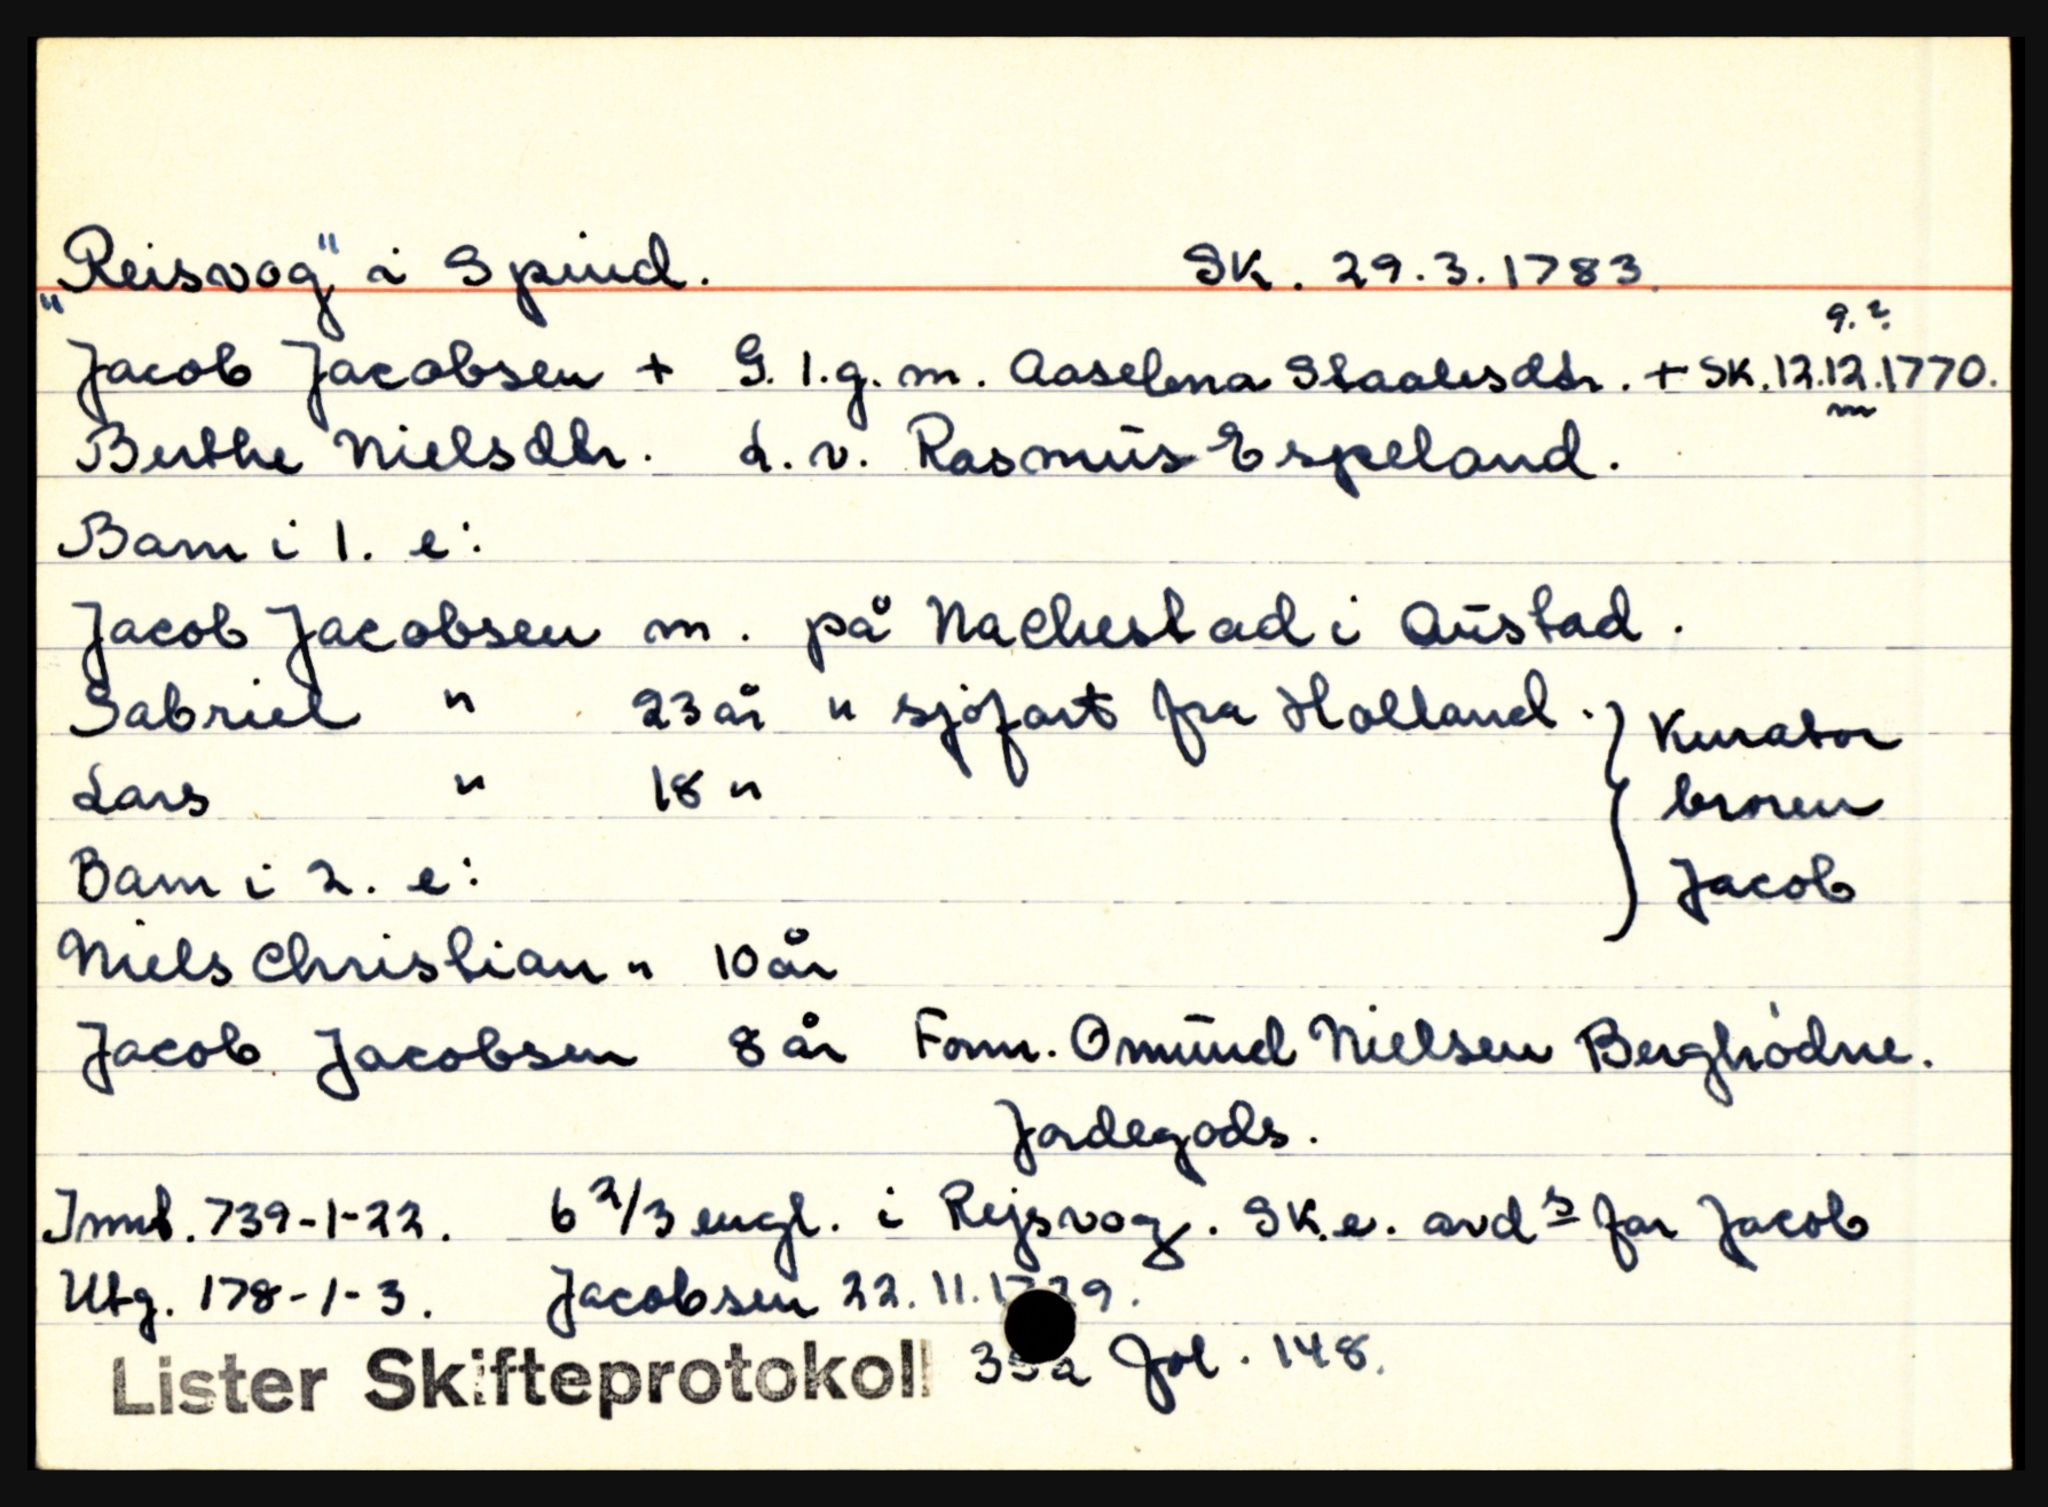 "Reisvog" i Spind. SK. 29.3.1783.
9.?
Jacob Jacobsen + G. 1.g.m. Aaselena Staalesdtr. + SK.12.12.1770.
m
Berthe Nielsdtr. L.v. Rasmus Espeland.
Barn i 1. e:
Jacob Jacobsen m. på Nachestad i Austad.
Gabriel " 23 år " sjøfart fra Holland. } Kurator
Lars " 18 " broren
Barn i 2. e: Jacob
Niels Christian " 10 år
Jacob Jacobsen 8 år Form. Omund Nielsen Berghødne.
Jordegods.
Innt. 739-1-22. 6 2/3 engl. i Rejsvog. SK.e. avds far Jacob
Utg. 178-1-3. Jacobsen 22.11.
Lister Skifteprotokoll fol. 148.